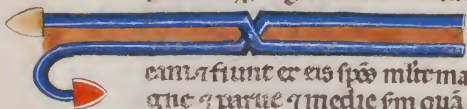 eam ⁊ fiunt ex eis spōs mlte ma
gne ⁊ parue ⁊ medie sm quā